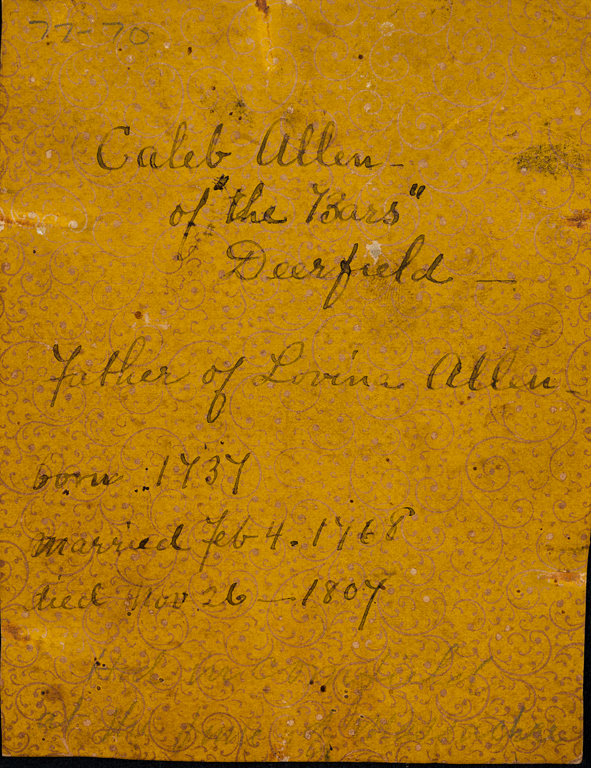 77-70
Caleb Allen -
of "the Bars"
Deerfield —
Father of Lovina Allen -
born 1737
married Feb 4. 1768
died Nov 26 — 1807
at the